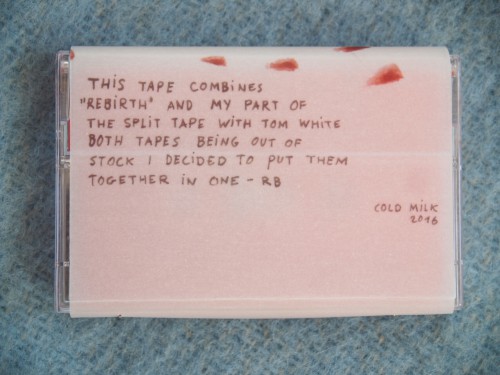 THIS TAPE COMBINES
"REBIRTH" AND MY PART OF
THE SPLIT TAPE WITH TOM WHITE
BOTH TAPES BEING OUT OF
STOCK I DECIDED TO PUT THEM
TOGETHER IN ONE - RB
COLD MILK
2016